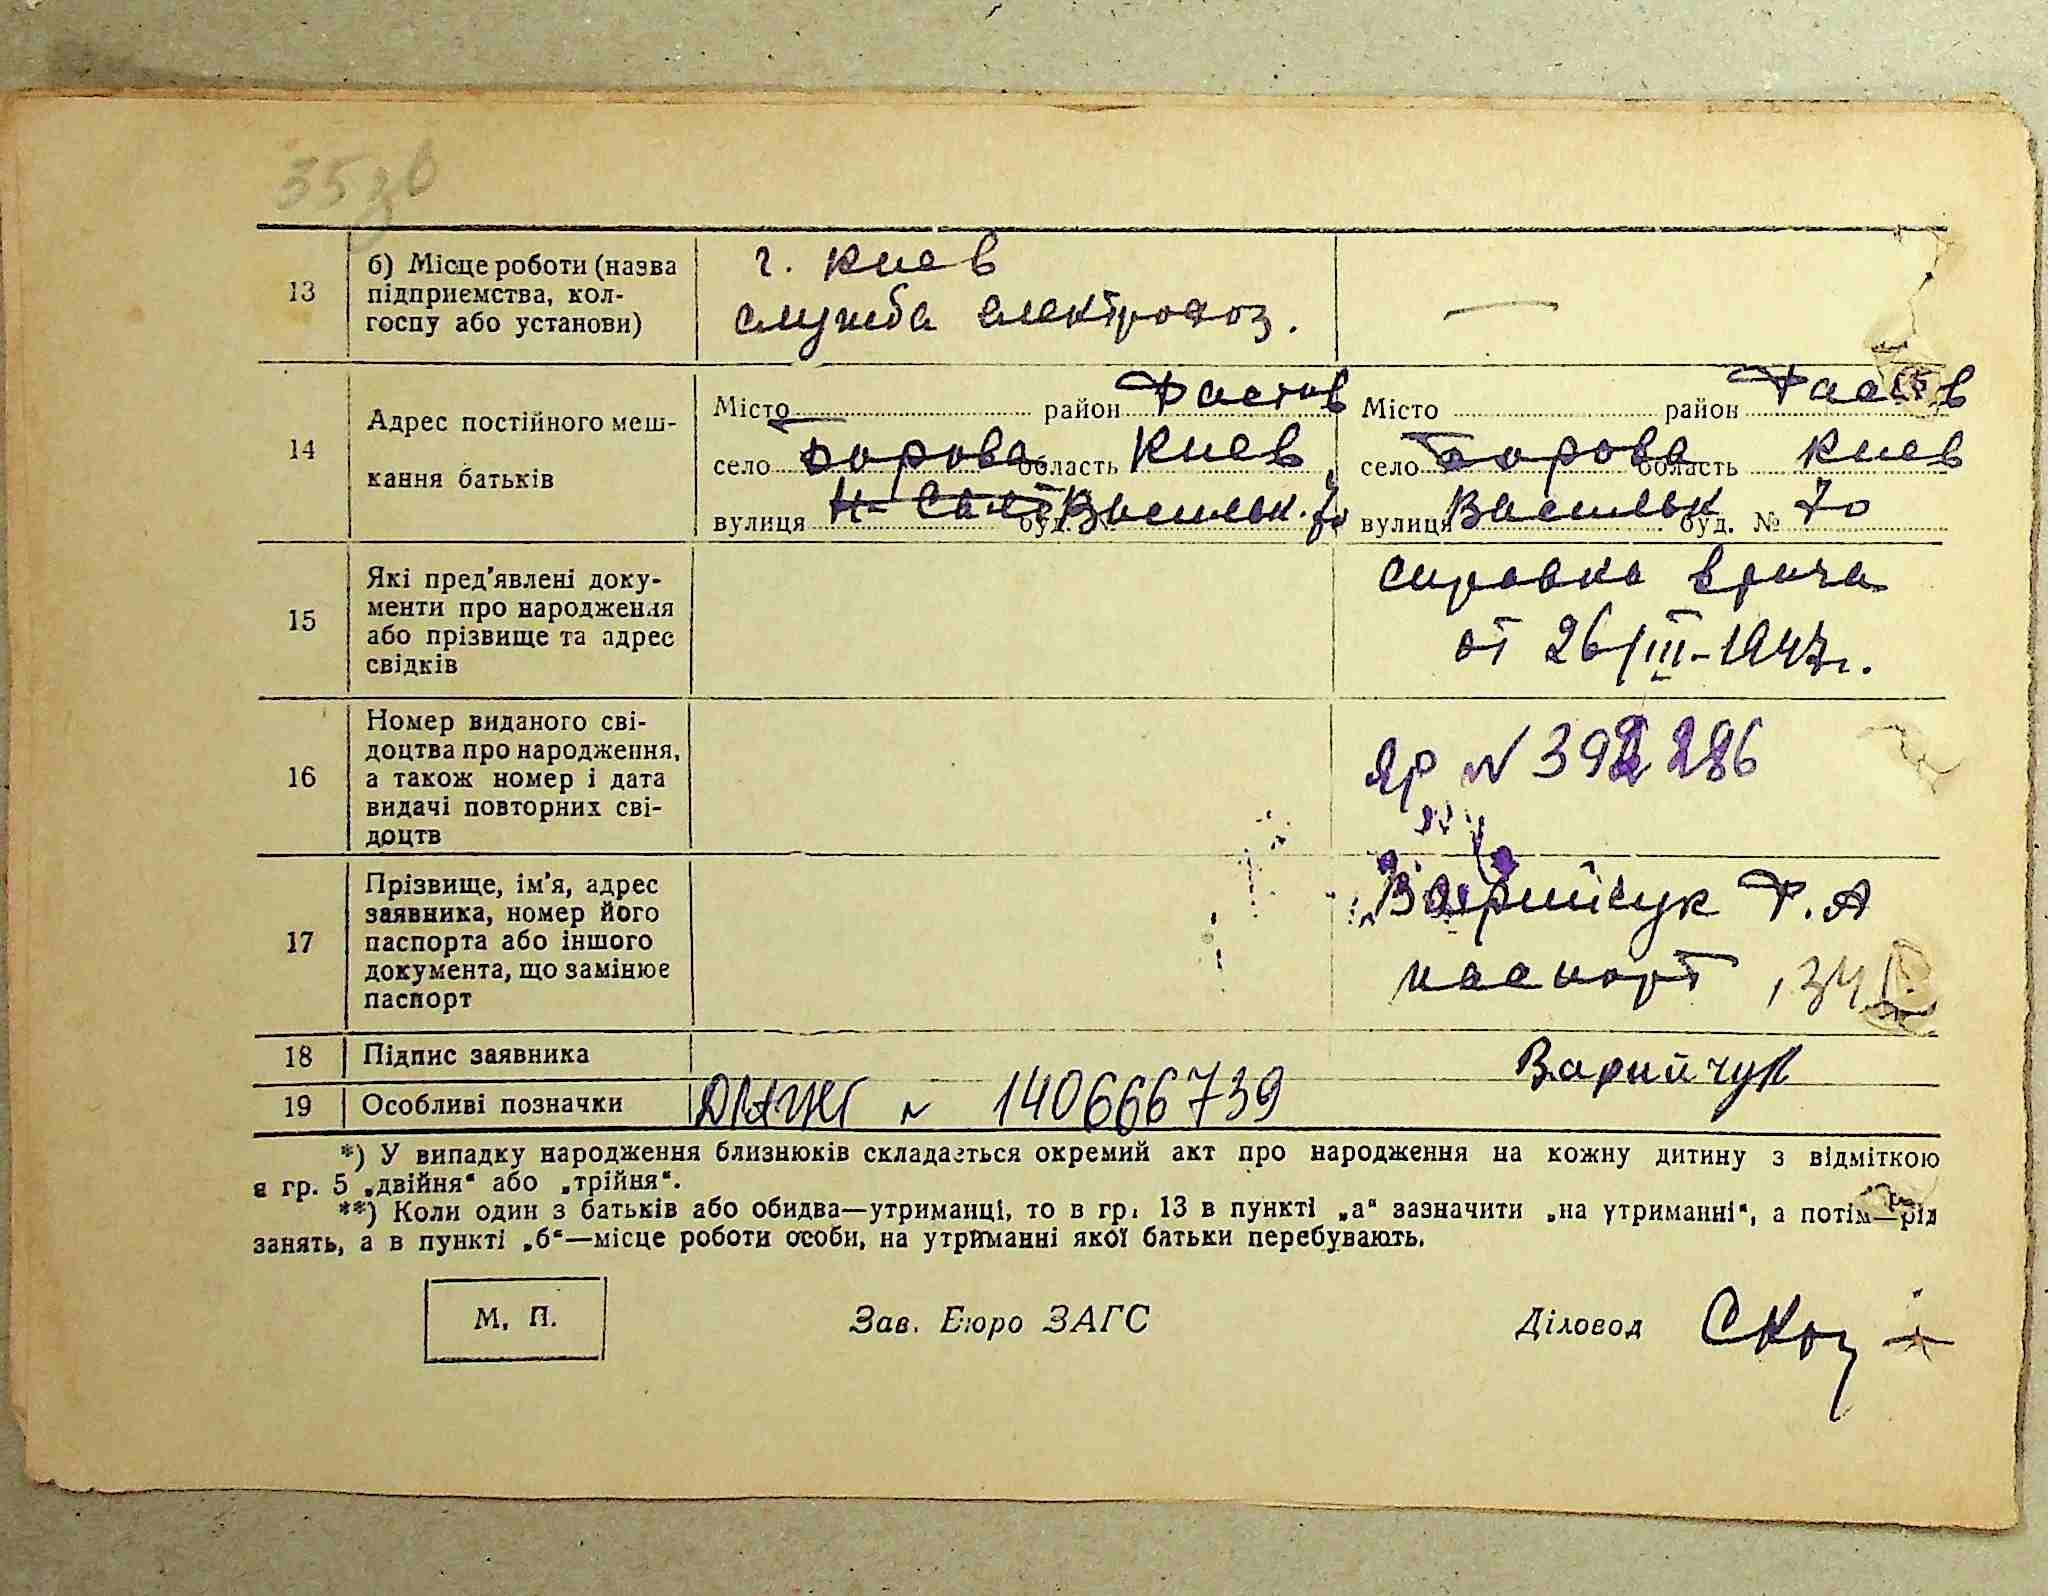 35зв
13
б) Місце роботи (назва
підприємства, кол-
госпу або установи)
г. Киев
служба електровоз.
—
14
Адрес постійного меш-
кання батьків
Місто район Фастов
село Борова область Киев
вулиця Васильк. 70
Місто район Фастов
село Борова область Киев
вулиця Васильк буд. № 70
15
Які пред'явлені доку-
менти про народження
або прізвище та адрес
свідків
справка врача
от 26/III-1947г.
16
Номер виданого сві-
доцтва про народження,
а також номер і дата
видачі повторних сві-
доцтв
ЯР N 392286
17
Прізвище, ім'я, адрес
заявника, номер його
паспорта або іншого
документа, що замінює
паспорт
Варийчук Ф. А
паспорт
18
Підпис заявника
Варийчук
19
Особливі позначки
ДРАЦСГ N 140666739
*) У випадку народження близнюків складається окремий акт про народження на кожну дитину з відміткою
в гр. 5 „двійня“ або „трійня“.
**) Коли один з батьків або обидва—утриманці, то в гр. 13 в пункті „а“ зазначити „на утриманні“, а потім—рід
занять, а в пункті „б“—місце роботи особи, на утриманні якої батьки перебувають.
М. П.
Зав. Бюро ЗАГС
Діловод